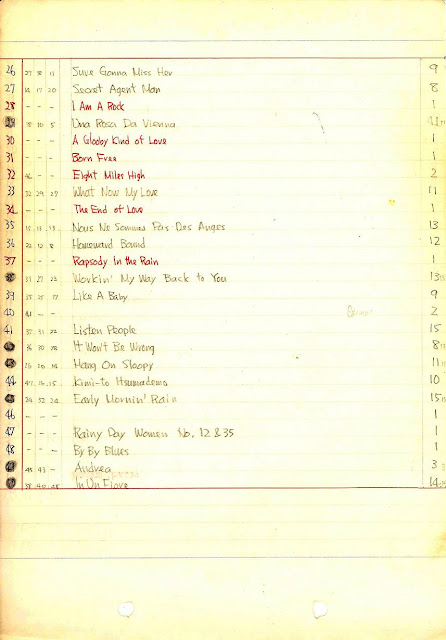 26 27 38 11 Suve Gonna Miss Her 9
27 16 17 20 Secret Agent Man 8
28 - - - I Am A Rock 1
29 10 5 Una Rosa Da Vienna 11
30 - - - A Glooby Kind of Love 1
31 - - - Born Free 1
32 46 - - Eight Miles High 2
33 32 29 27 What Now My Love 11
34 - - - The End of Love 1
35 Nous Ne Sommes Pas Des Anges 13
36 22 12 8 Homeward Bound 12
37 - - - Rapsody In the Rain 1
31 27 23 Workin' My Way Back to You 13
39 35 25 17 Like A Baby 9
40 41 - - 2
41 32 31 22 Listen People 15
36 30 28 It Won't Be Wrong 8
Hang On Sloopy 11
44 47 16 15 Kimi-to Itsumademo 10
24 32 24 Early Mornin' Rain 15
46 - - - 1
47 - - - Rainy Day Women No. 12 & 35 1
48 - - - By By Blues 1
45 43 - Andrea 3
38 40 48 In Un Fiore 14